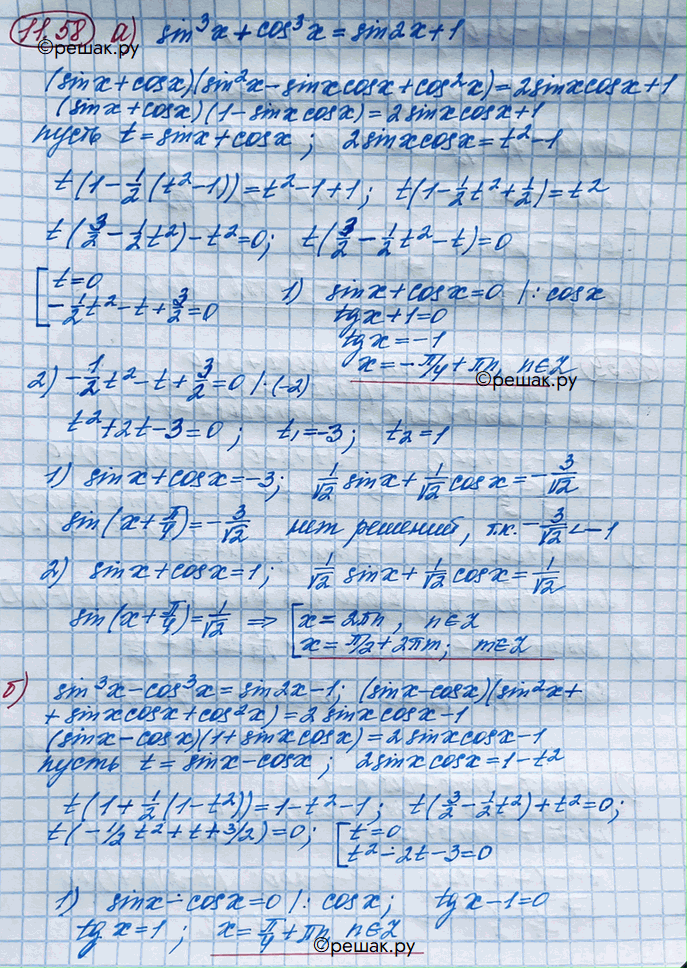 11.58 а) sin³x + cos³x = sin2x + 1
©решак.ру
(sinx + cosx)(sin²x - sinxcosx + cos²x) = 2sinxcosx + 1
(sinx + cosx)(1 - sinxcosx) = 2sinxcosx + 1
пусть t = sinx + cosx ; 2sinxcosx = t² - 1
t(1 - 1/2(t² - 1)) = t² - 1 + 1; t(1 - 1/2t² + 1/2) = t²
t(3/2 - 1/2t²) - t² = 0; t(3/2 - 1/2t² - t) = 0
[ t = 0
-1/2t² - t + 3/2 = 0
1) sinx + cosx = 0 |: cosx
tgx + 1 = 0
tgx = -1
x = -π/4 + πn, n∈Z
©решак.ру
2) -1/2t² - t + 3/2 = 0 |·(-2)
t² + 2t - 3 = 0 ; t₁ = -3; t₂ = 1
1) sinx + cosx = -3; 1/√2 sinx + 1/√2 cosx = -3/√2
sin(x + π/4) = -3/√2 нет решений, т.к. -3/√2 < -1
2) sinx + cosx = 1; 1/√2 sinx + 1/√2 cosx = 1/√2
sin(x + π/4) = 1/√2 ⇒ [ x = 2πn, n∈Z
x = π/2 + 2πm; m∈Z
б) sin³x - cos³x = sin2x - 1; (sinx - cosx)(sin²x +
+ sinxcosx + cos²x) = 2sinxcosx - 1
(sinx - cosx)(1 + sinxcosx) = 2sinxcosx - 1
пусть t = sinx - cosx ; 2sinxcosx = 1 - t²
t(1 + 1/2(1 - t²)) = 1 - t² - 1; t(3/2 - 1/2t²) + t² = 0;
t(-1/2 t² + t + 3/2) = 0; [ t = 0
t² - 2t - 3 = 0
1) sinx - cosx = 0 |: cosx; tgx - 1 = 0
tgx = 1 ; x = π/4 + πn, n∈Z
©решак.ру